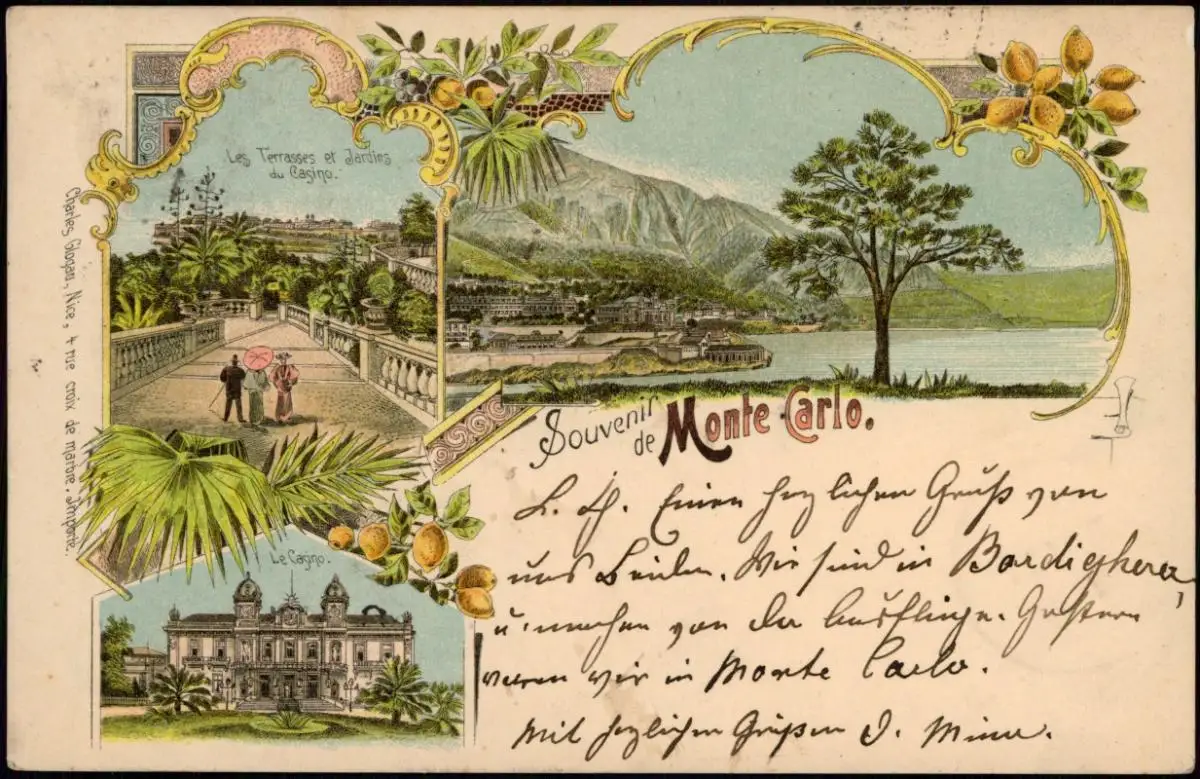 Les Terrasses et Jardins
du Casino.
Souvenir
de Monte-Carlo.
L. H. Einen herzlichen Gruß von
uns Beiden. Wir sind in Bordighera,
u. machen von da Ausflüge. Gestern
waren wir in Monte Carlo.
Mit herzlichen Grüßen D. Minna.
Le Casino.
Charles Glogau, Nice, 4 rue croix de marbre. Importé.